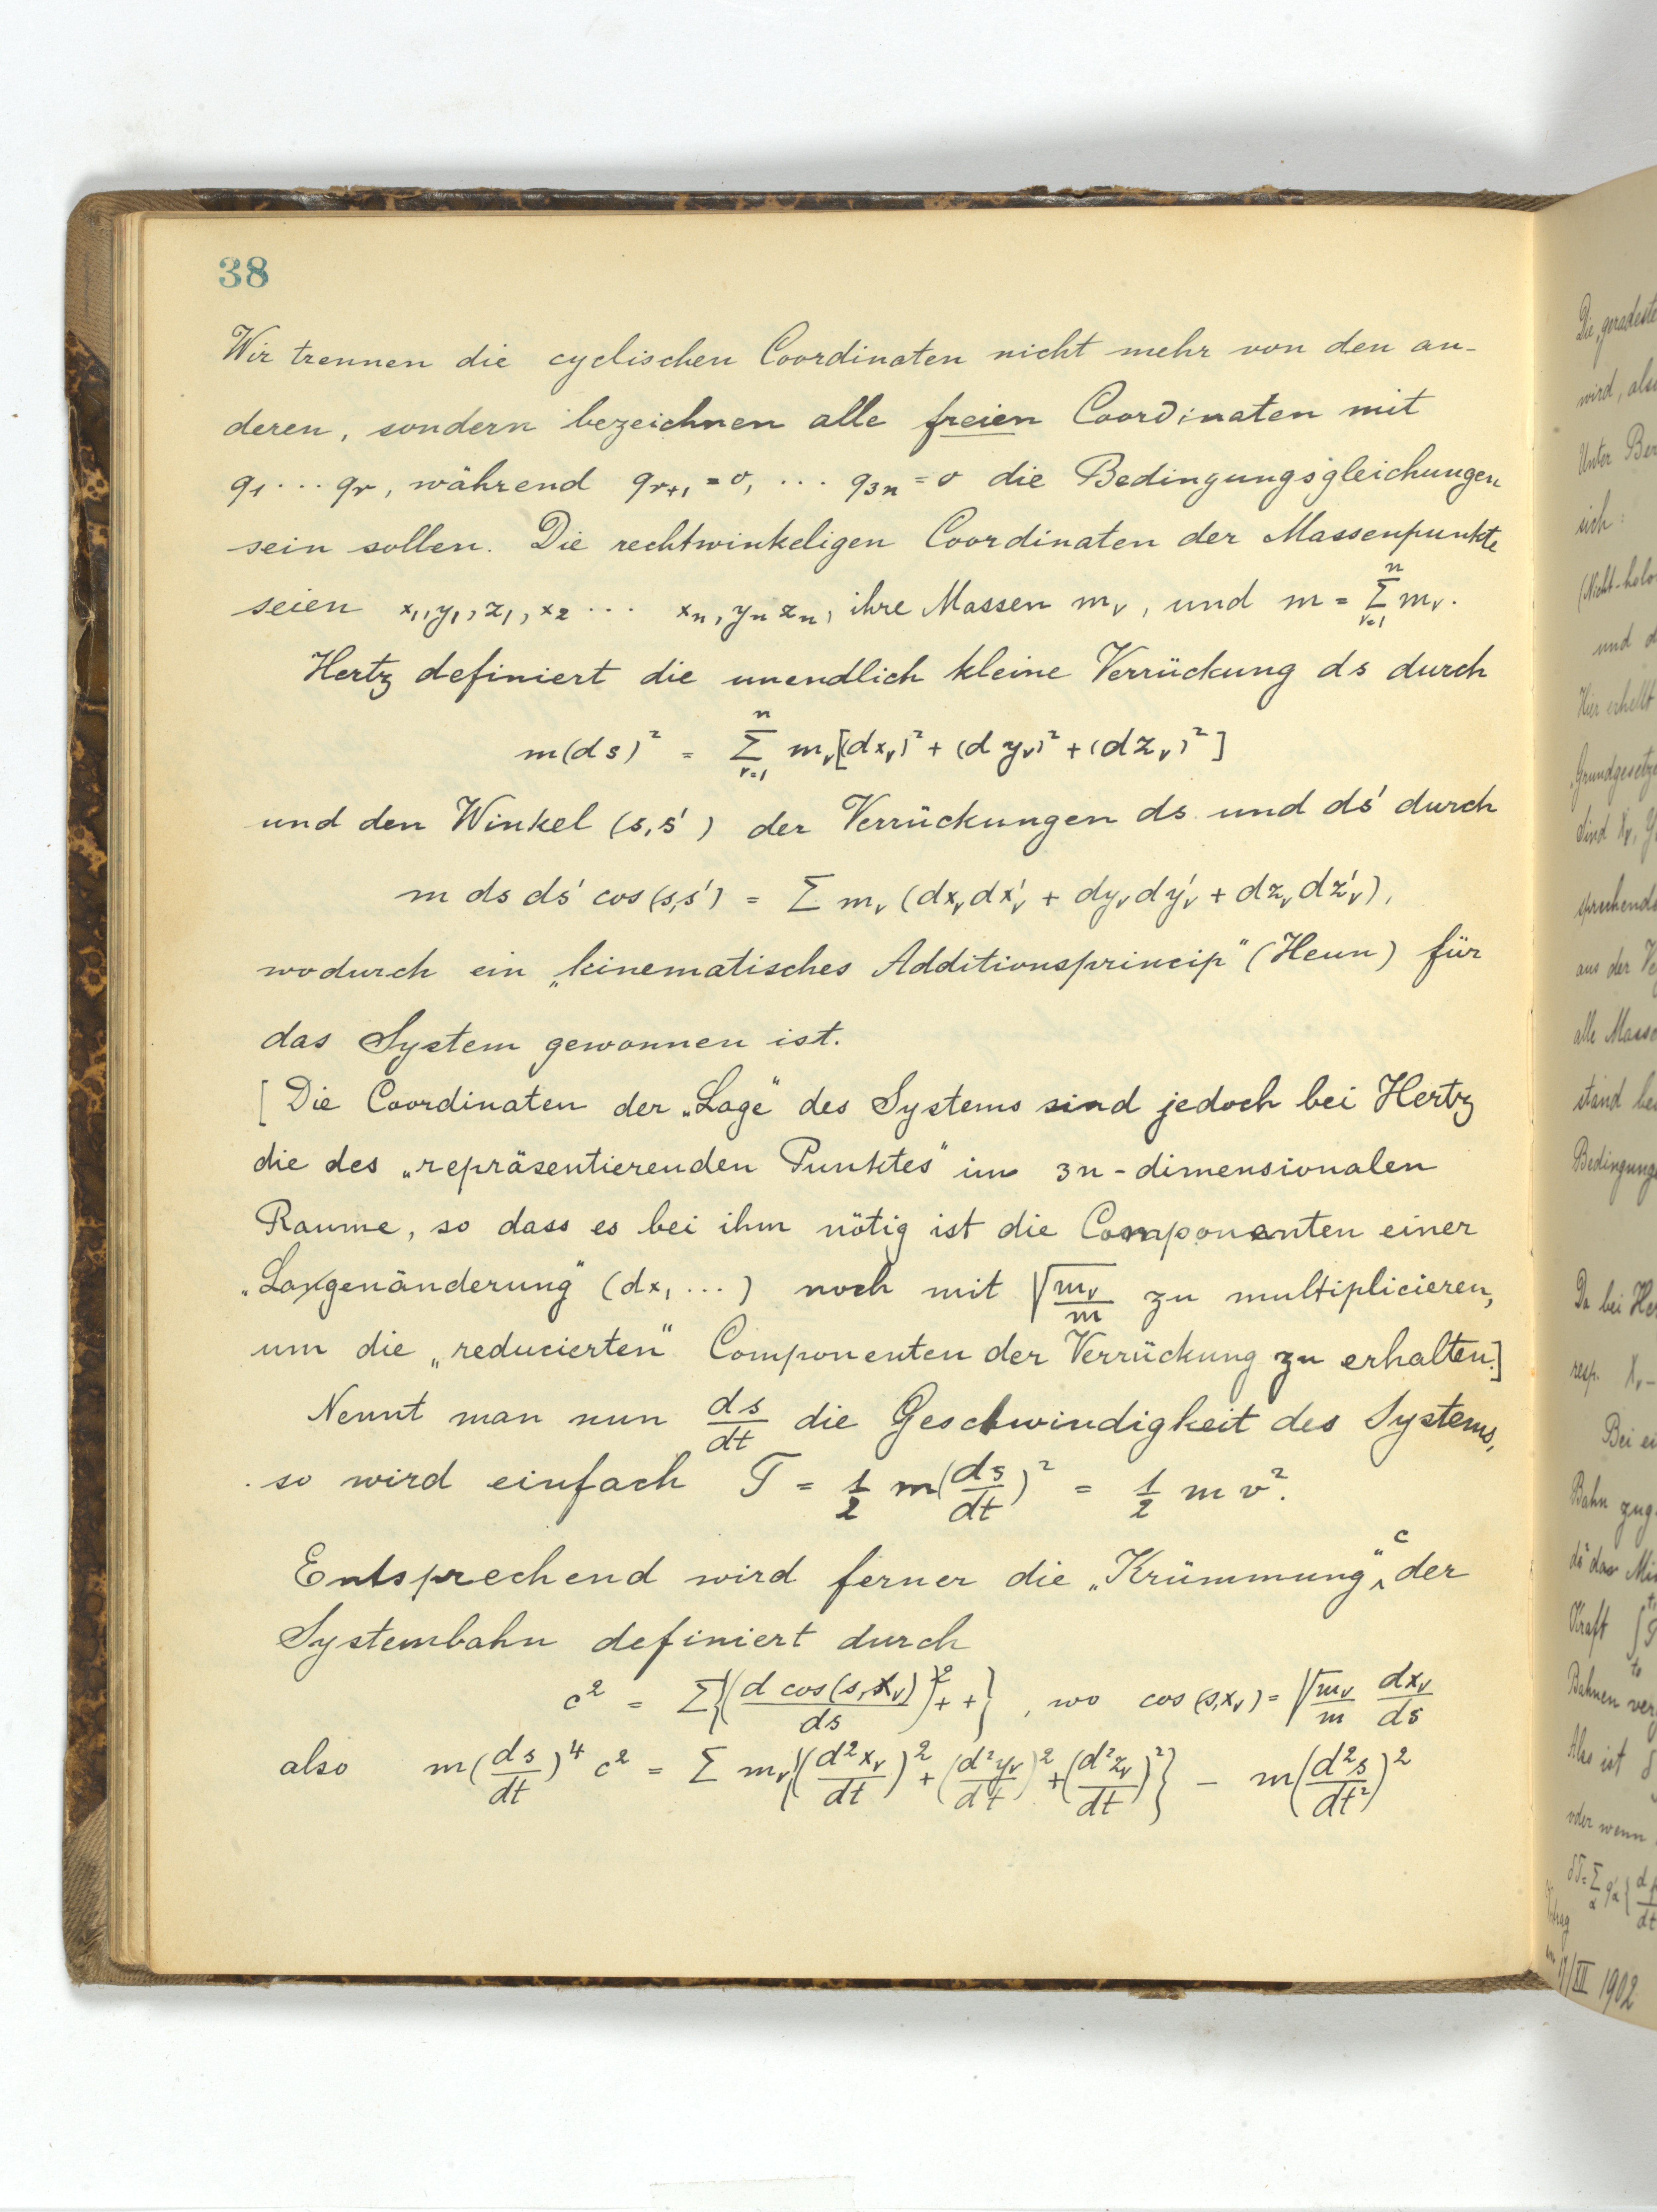 38
Wir trennen die cyclischen Coordinaten nicht mehr von den an-
deren, sondern bezeichnen alle freien Coordinaten mit
q₁ ... qᵣ, während qᵣ₊₁ = 0, ... q₃ₙ = 0 die Bedingungsgleichungen
sein sollen. Die rechtwinkeligen Coordinaten der Massenpunkte
seien x₁, y₁, z₁, x₂ ... xₙ, yₙ zₙ, ihre Massen mᵥ, und m = Σⁿᵥ₌₁ mᵥ.
Hertz definiert die unendlich kleine Verrückung ds durch
m(ds)² = Σⁿᵥ₌₁ mᵥ[(dxᵥ)² + (dyᵥ)² + (dzᵥ)²]
und den Winkel (s, s') der Verrückungen ds und ds' durch
m ds ds' cos (s,s') = Σ mᵥ (dxᵥ dx'ᵥ + dyᵥ dy'ᵥ + dzᵥ dz'ᵥ),
wodurch ein „kinematisches Additionsprincip" (Heun) für
das System gewonnen ist.
[Die Coordinaten der „Lage" des Systems sind jedoch bei Hertz
die des „repräsentierenden Punktes" im 3n-dimensionalen
Raume, so dass es bei ihm nötig ist die Componenten einer
„Lagenänderung" (dx₁ ...) noch mit √(mᵥ/m) zu multiplicieren,
um die „reducierten" Componenten der Verrückung zu erhalten.]
Nennt man nun ds/dt die Geschwindigkeit des Systems,
so wird einfach T = 1/2 m(ds/dt)² = 1/2 m v².
Entsprechend wird ferner die „Krümmung" c der
Systembahn definiert durch
c² = Σ{(d cos(s,xᵥ)/ds)² + +}, wo cos (s,xᵥ) = √(mᵥ/m) dxᵥ/ds
also m(ds/dt)⁴ c² = Σ mᵥ{(d²xᵥ/dt)² + (d²yᵥ/dt)² + (d²zᵥ/dt)²} − m(d²s/dt²)²
Die „geradeste
wird, also
Unter
sich:
und
Hier erhellt
sind Xᵥ,
aus der
alle
stand
Da bei
resp. Xᵥ
Bei
Bahn
Kraft
Bahnen
Also ist
oder wenn
1902